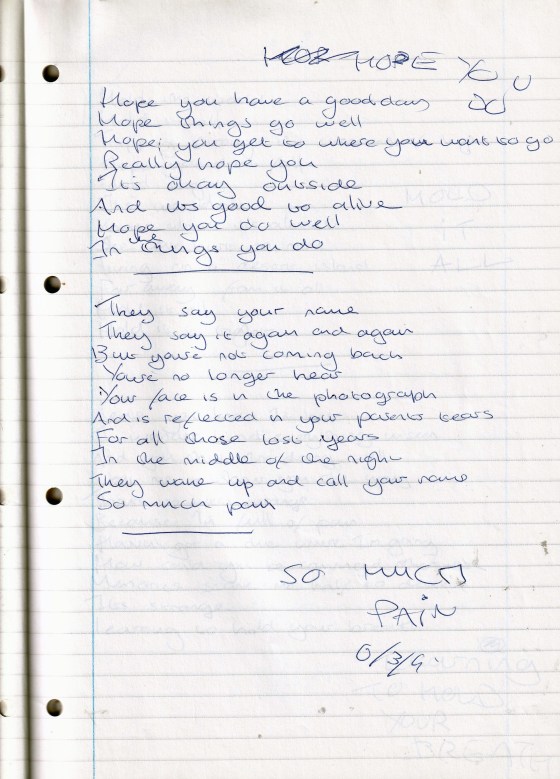 HOPE YOU
DO
Hope you have a good day
Hope things go well
Hope; you get to where you want to go
Really hope you
It's okay outside
And its good to alive
Hope you do well
In the things you do
They say your name
They say it again and again
But you're not coming back
You're no longer hear
Your face is in the photograph
And is reflected in your parents tears
For all those lost years
In the middle of the night
They wake up and call your name
So much pain
SO MUCH
PAIN
6/3/9.